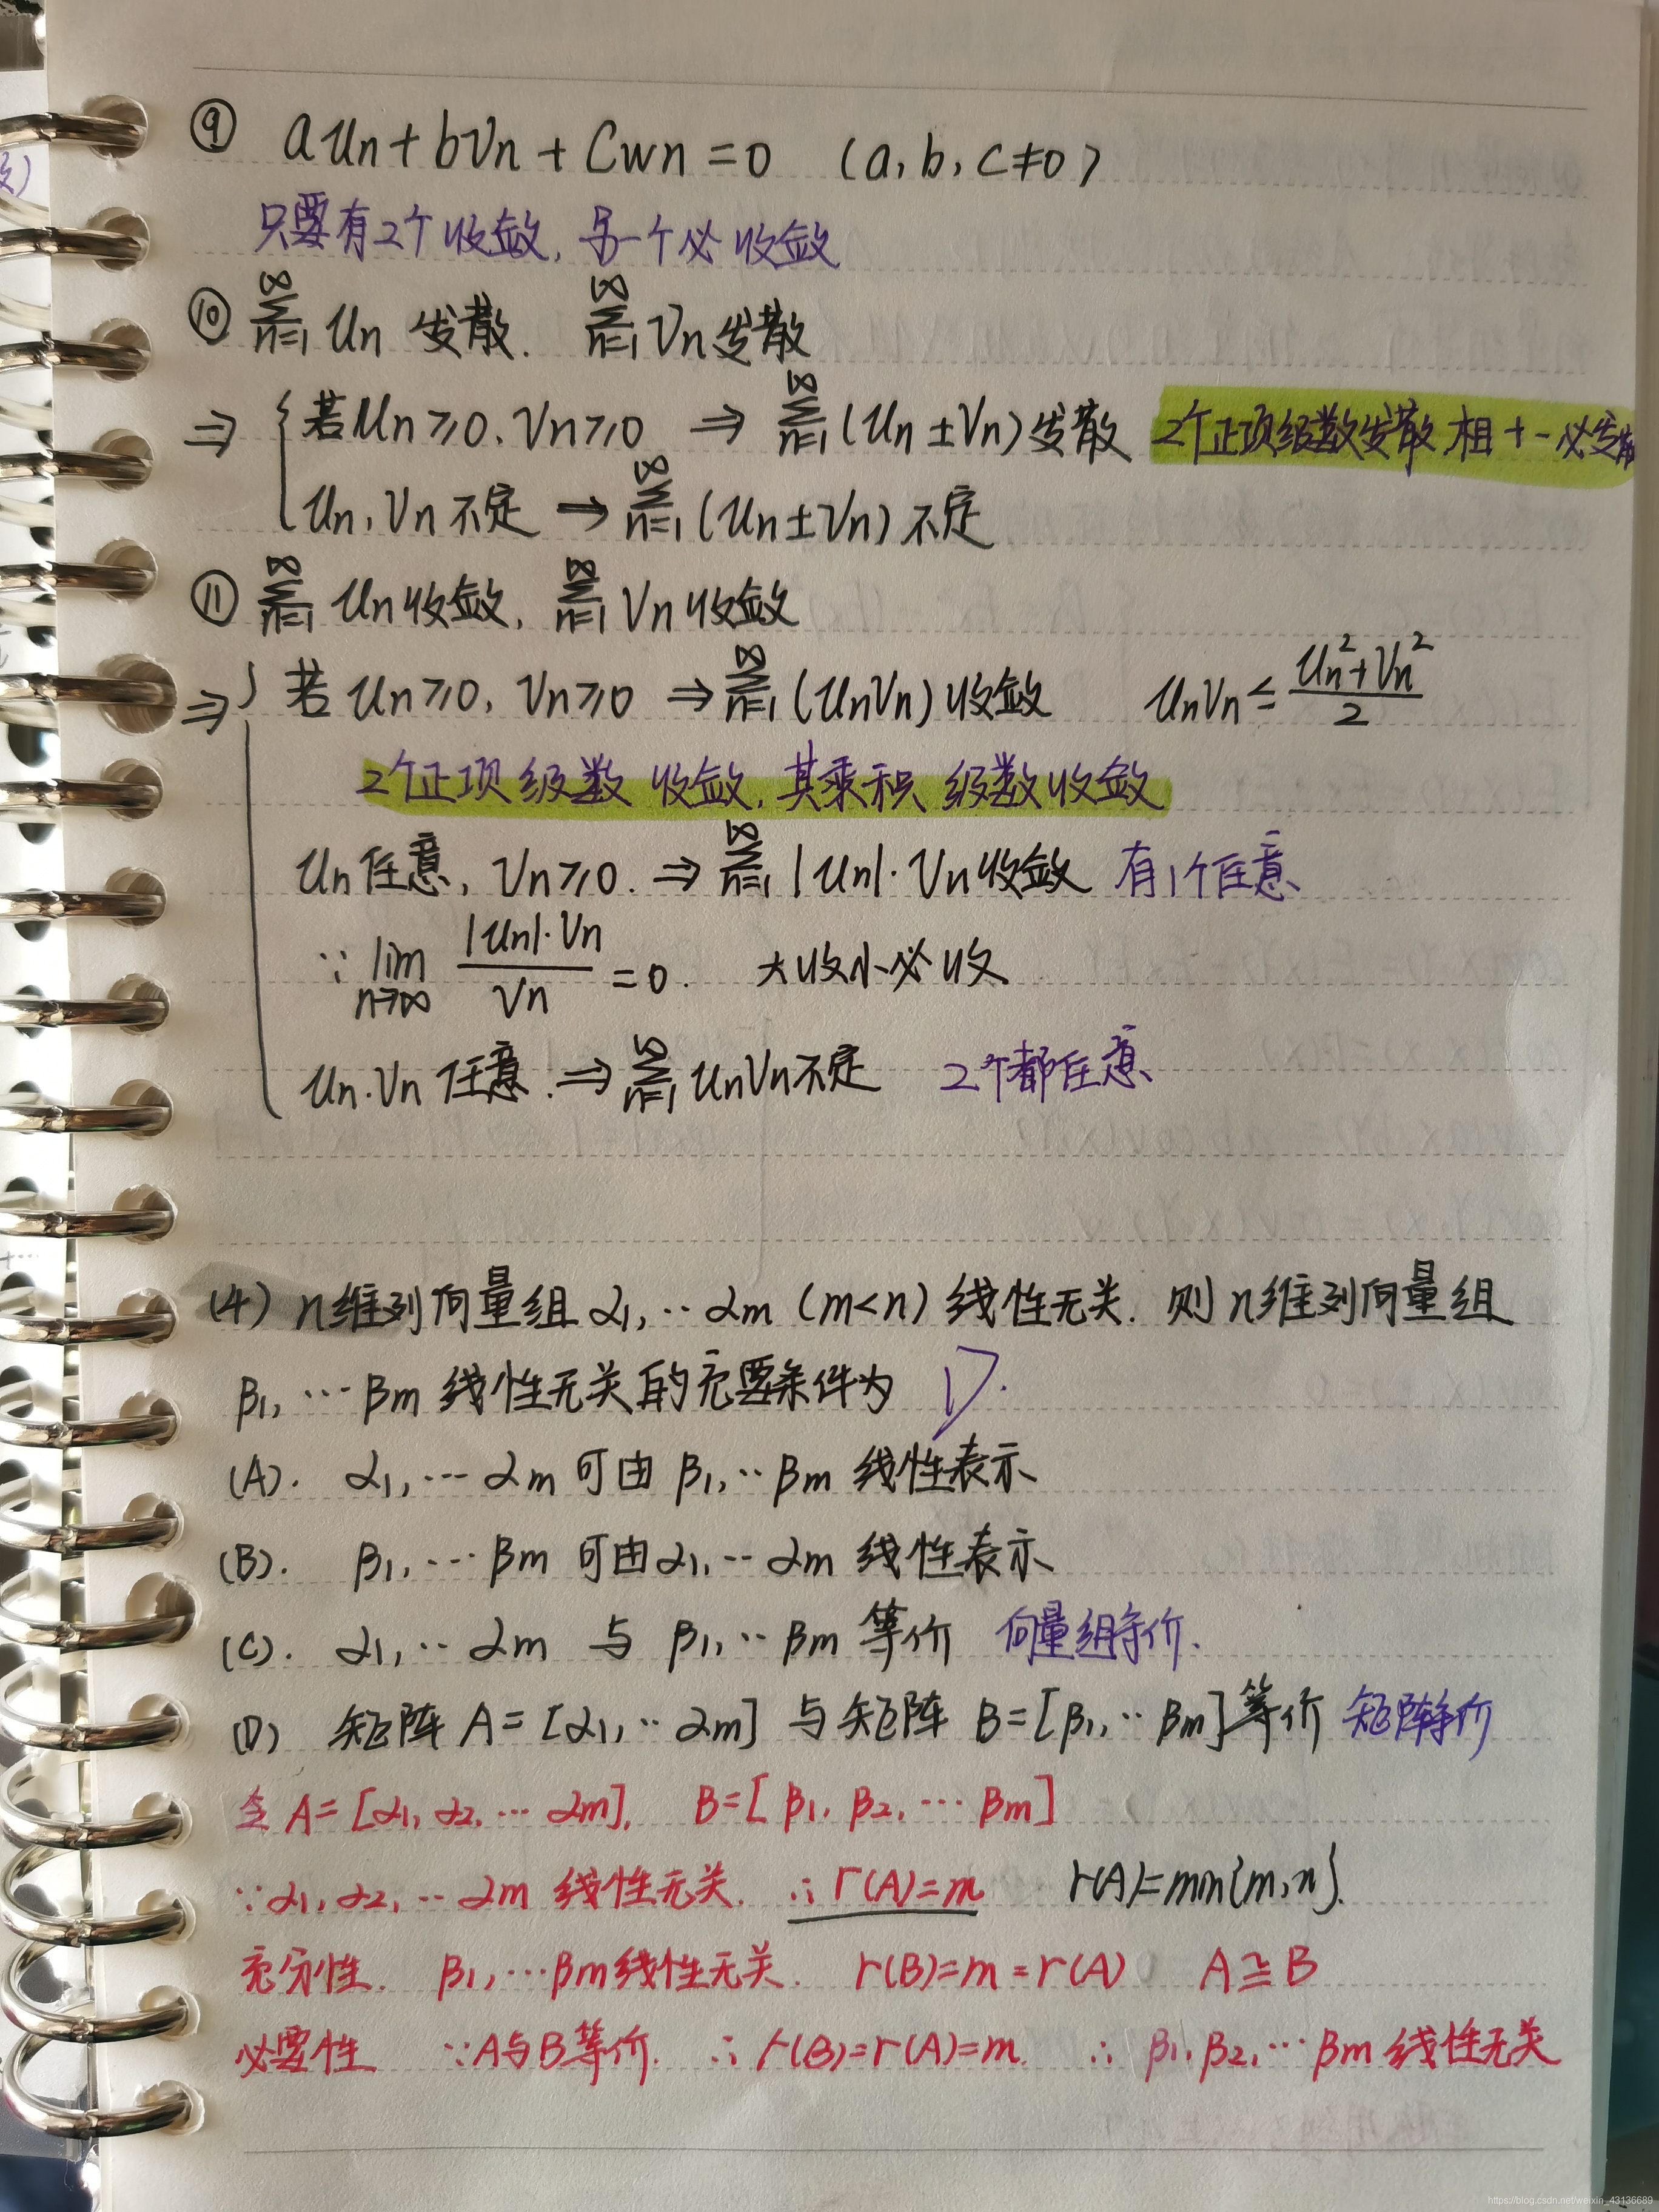 ⑨ aun+bvn+cwn=0 (a,b,c≠0)
只要有2个收敛,另一个必收敛
⑩ ∞∑n=1 un 发散. ∞∑n=1 vn发散
⇒ { 若un≥0,vn≥0 ⇒ ∞∑n=1 (un±vn)发散 2个正项级数发散,相+-必发散
un,vn不定 ⇒ ∞∑n=1 (un±vn)不定
⑪ ∞∑n=1 un收敛, ∞∑n=1 vn收敛
⇒ { 若un≥0,vn≥0 ⇒ ∞∑n=1 (unvn)收敛 unvn≤(un²+vn²)/2
2个正项级数收敛,其乘积级数收敛
un任意,vn≥0. ⇒ ∞∑n=1 |un|·vn收敛 有1个任意
∵ lim n→∞ |un|·vn/vn =0. 大收小必收
un.vn任意.⇒ ∞∑n=1 unvn不定 2个都任意
(4) n维列向量组α1,··αm (m<n) 线性无关. 则n维列向量组
β1,···βm 线性无关的充要条件为 D.
(A). α1,···αm 可由 β1,··βm 线性表示
(B). β1,···βm 可由α1,··αm 线性表示
(C). α1,··αm 与 β1,··βm 等价 向量组等价.
(D) 矩阵 A=[α1,··αm] 与矩阵 B=[β1,··βm]等价 矩阵等价
令A=[α1,α2,···αm], B=[β1,β2,···βm]
∵α1,α2,··αm 线性无关. ∴r(A)=m r(A)=min{m,n}.
充分性. β1,···βm线性无关. r(B)=m=r(A) A≅B
必要性 ∵A与B等价. ∴r(B)=r(A)=m. ∴ β1,β2,···βm 线性无关
https://blog.csdn.net/weixin_43136689